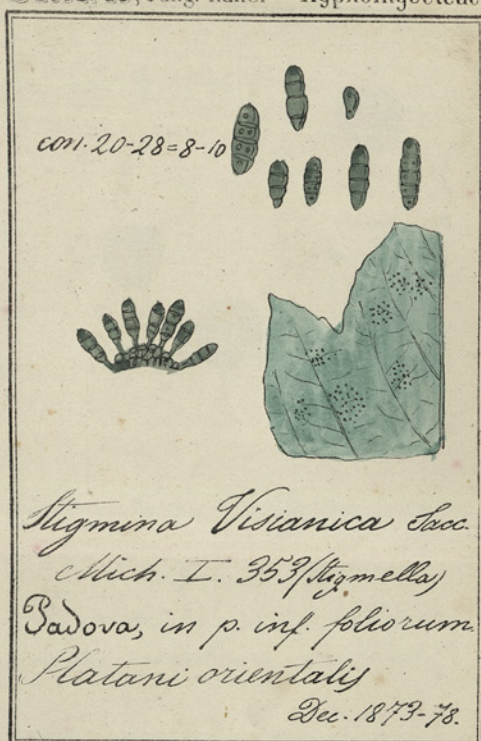 con. 20-28=8-10
Stigmina Visianica Sacc.
Mich. I. 353 (Stigmella)
Padova, in p. inf. foliorum
Platani orientalis
Dec. 1873-78.